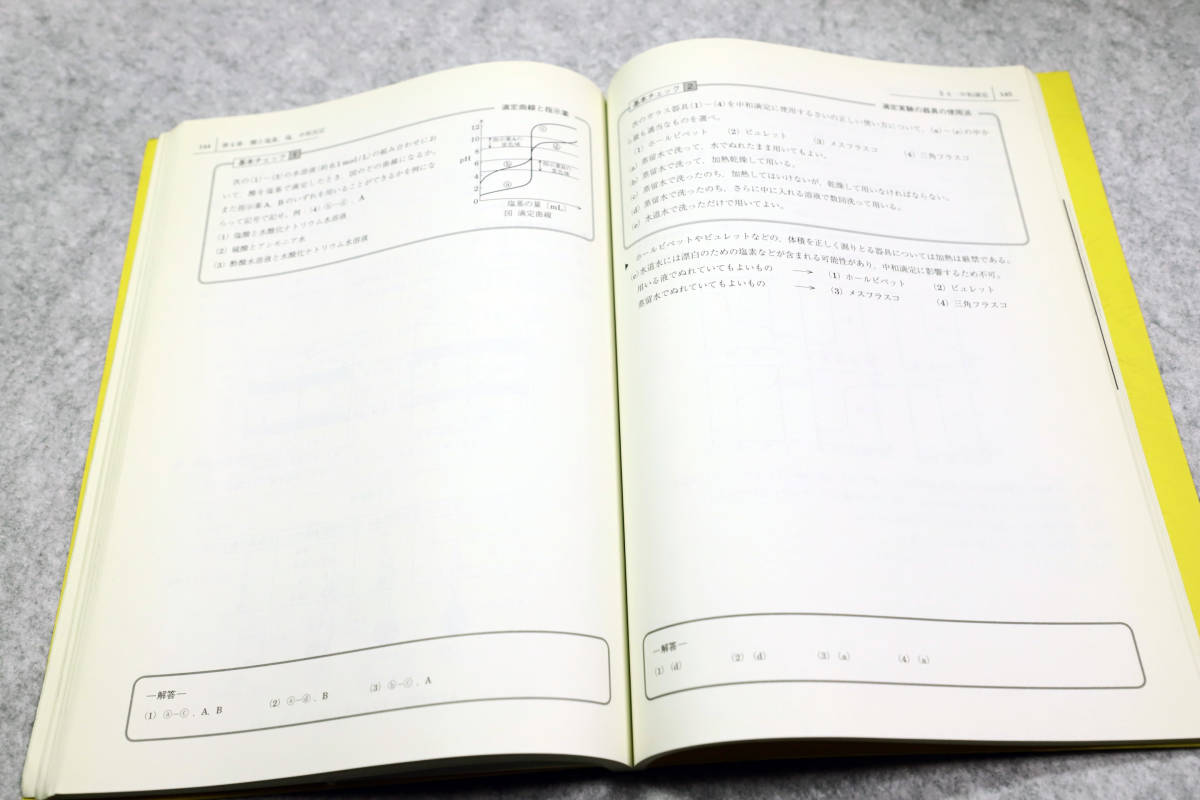 144 第6章 酸と塩基，塩，中和反応
基本チェック 1
滴定曲線と指示薬
次の(1)～(3)の水溶液(約0.1 mol/L)の組み合わせにお
いて，酸を塩基で滴定したとき，図のどの曲線になるか。
また指示薬A，Bのいずれを用いることができるかを例にな
らって記号で記せ。例：(4) ⓑ-ⓓ，A
(1) 塩酸と水酸化ナトリウム水溶液
(2) 硫酸とアンモニア水
(3) 酢酸水溶液と水酸化ナトリウム水溶液
12
10
8
pH 6
4
2
0
ⓒ
ⓓ
ⓑ
ⓐ
指示薬Aの
変色域
指示薬Bの
変色域
塩基の量〔mL〕
図 滴定曲線
―解答―
(1) ⓐ-ⓒ，A，B
(2) ⓐ-ⓓ，B
(3) ⓑ-ⓒ，A
中和滴定 145
基本チェック 2
滴定実験の器具の使用法
次のガラス器具(1)～(4)を中和滴定に使用するさいの正しい使い方について，(a)～(e)の中か
ら最も適当なものを選べ。
(1) ホールピペット (2) ビュレット (3) メスフラスコ (4) 三角フラスコ
(a) 蒸留水で洗って，水でぬれたまま用いてもよい。
(b) 蒸留水で洗って，加熱乾燥して用いる。
(c) 蒸留水で洗ったのち，加熱してはいけないが，乾燥して用いなければならない。
(d) 蒸留水で洗ったのち，さらに中に入れる溶液で数回洗って用いる。
(e) 水道水で洗っただけで用いてよい。
ホールピペットやビュレットなどの，体積を正しく測りとる器具については加熱は厳禁である。
(e)水道水には漂白のための塩素などが含まれる可能性があり，中和滴定に影響するため不可。
用いる液でぬれていてもよいもの → (1) ホールピペット (2) ビュレット
蒸留水でぬれていてもよいもの → (3) メスフラスコ (4) 三角フラスコ
―解答―
(1) (d) (2) (d) (3) (a) (4) (a)